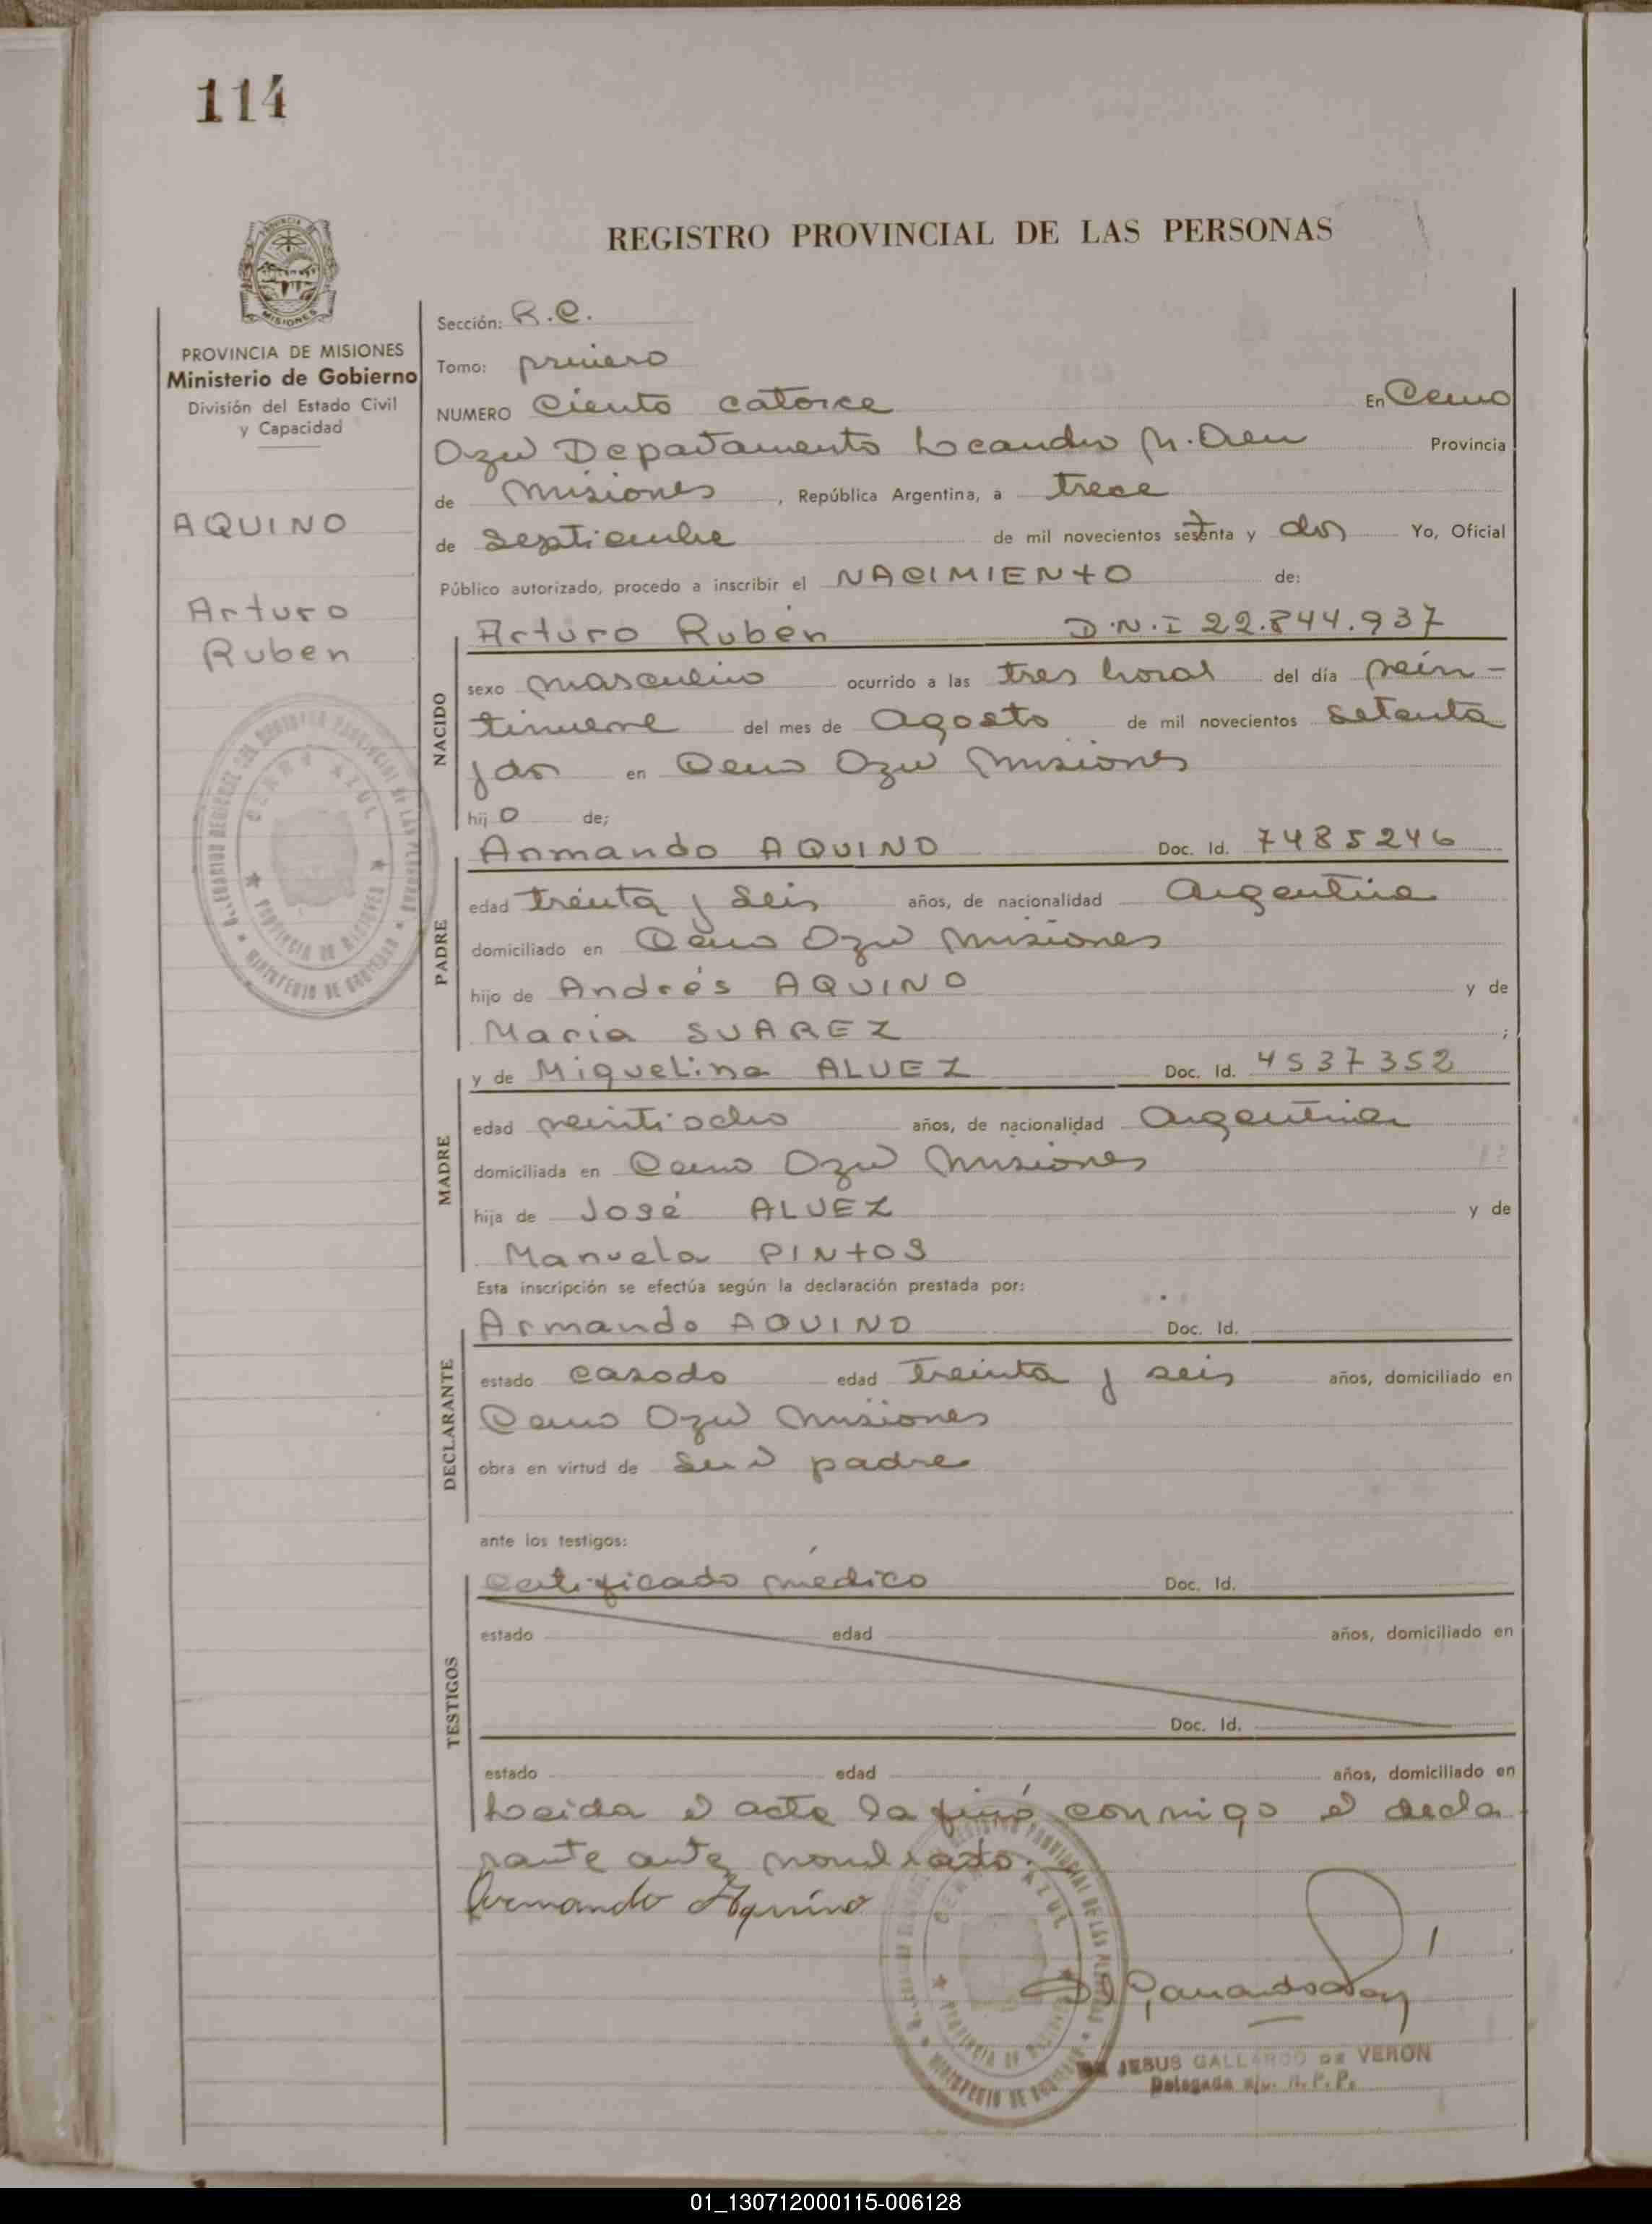 114
REGISTRO PROVINCIAL DE LAS PERSONAS
MISIONES
PROVINCIA DE MISIONES
Ministerio de Gobierno
División del Estado Civil
y Capacidad
AQUINO
Arturo
Ruben
Sección: R.C.
Tomo: primero
NUMERO Ciento catorce En Cerro
Azul Departamento Leandro N. Alem Provincia
de Misiones, República Argentina, a trece
de Septiembre de mil novecientos setenta y dos Yo, Oficial
Público autorizado, procedo a inscribir el NACIMIENTO de:
NACIDO
Arturo Rubén D.N.I 22.844.937
sexo masculino ocurrido a las tres horas del día vein-
tinueve del mes de Agosto de mil novecientos setenta
y dos en Cerro Azul Misiones
hijo de;
PADRE
Armando AQUINO Doc. Id. 7485246
edad treinta y seis años, de nacionalidad Argentina
domiciliado en Cerro Azul Misiones
hijo de Andrés AQUINO y de
Maria SUAREZ ;
MADRE
y de Miguelina ALVEZ Doc. Id. 4537352
edad veintiocho años, de nacionalidad Argentina
domiciliada en Cerro Azul Misiones
hija de José ALVEZ y de
Manuela PINTOS
Esta inscripción se efectúa según la declaración prestada por:
DECLARANTE
Armando AQUINO Doc. Id.
estado casado edad treinta y seis años, domiciliado en
Cerro Azul Misiones
obra en virtud de ser el padre
ante los testigos:
TESTIGOS
Certificado médico Doc. Id.
estado edad años, domiciliado en
Doc. Id.
estado edad años, domiciliado en
Leida el acta la firmó conmigo el decla
rante ante nombrado.
Armando Aquino
CERRO AZUL
PROVINCIA DE MISIONES
MINISTERIO DE GOBIERNO
JESUS GALLARDO DE VERON
Delegada
01_130712000115-006128